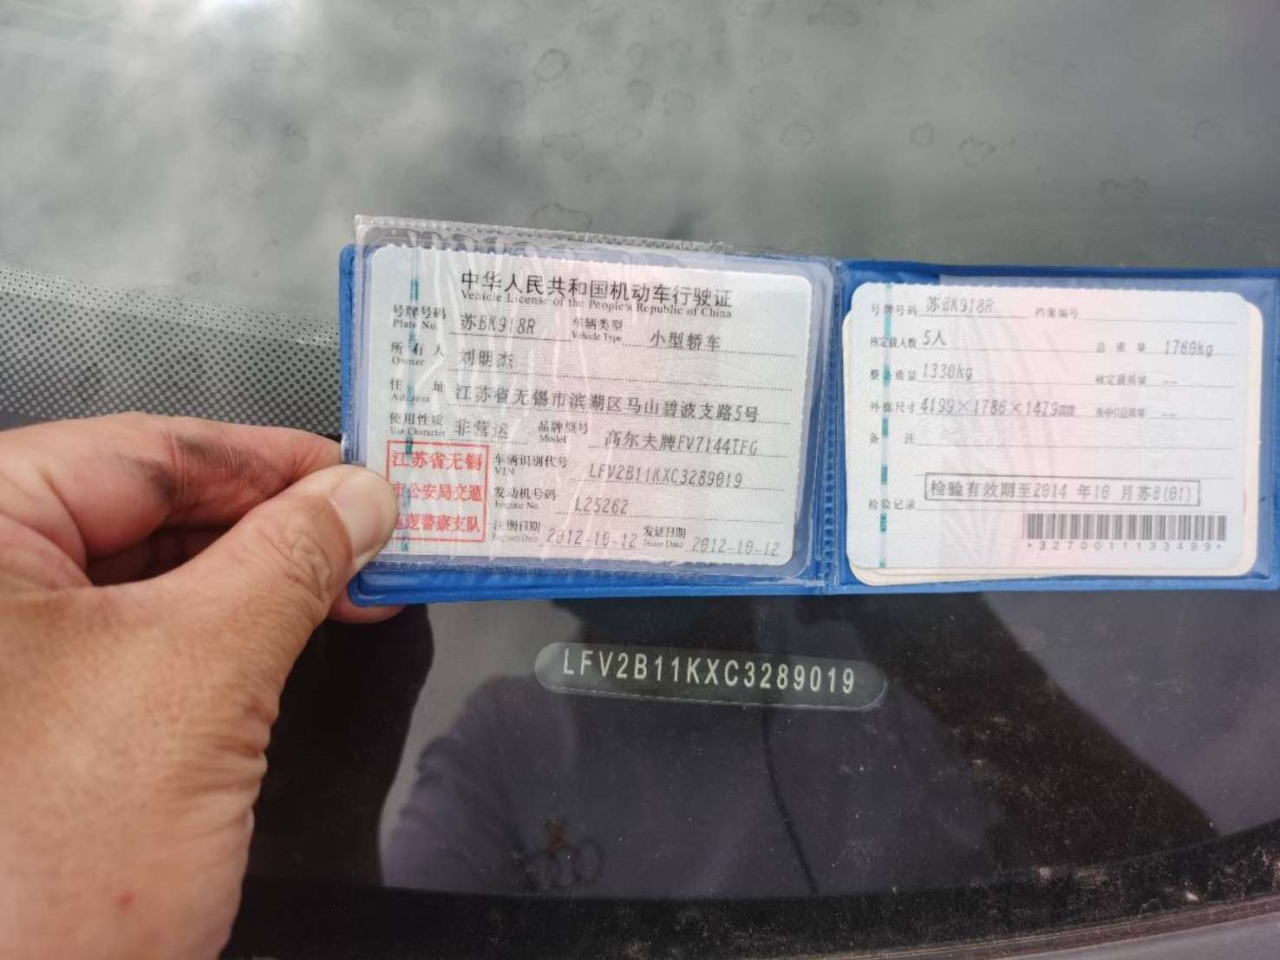 中华人民共和国机动车行驶证
Vehicle License of the People's Republic of China
号牌号码 苏BK918R 车辆类型 小型轿车
Plate No. Vehicle Type
所有人 刘明杰
Owner
住址 江苏省无锡市滨湖区马山碧波支路5号
Address
使用性质 非营运 品牌型号 高尔夫牌FV7144TFG
Use Character Model
江苏省无锡
市公安局交通
巡逻警察支队
车辆识别代号 LFV2B11KXC3289019
VIN
发动机号码 L25262
Engine No.
注册日期 2012-10-12 发证日期 2012-10-12
Register Date Issue Date
号牌号码 苏BK918R 档案编号
核定载人数 5人 总质量 1760kg
整备质量 1330kg 核定载质量 --
外廓尺寸 4199×1786×1479mm --
备注
检验记录 检验有效期至2014年10月苏B(01)
*3270011133499*
LFV2B11KXC3289019